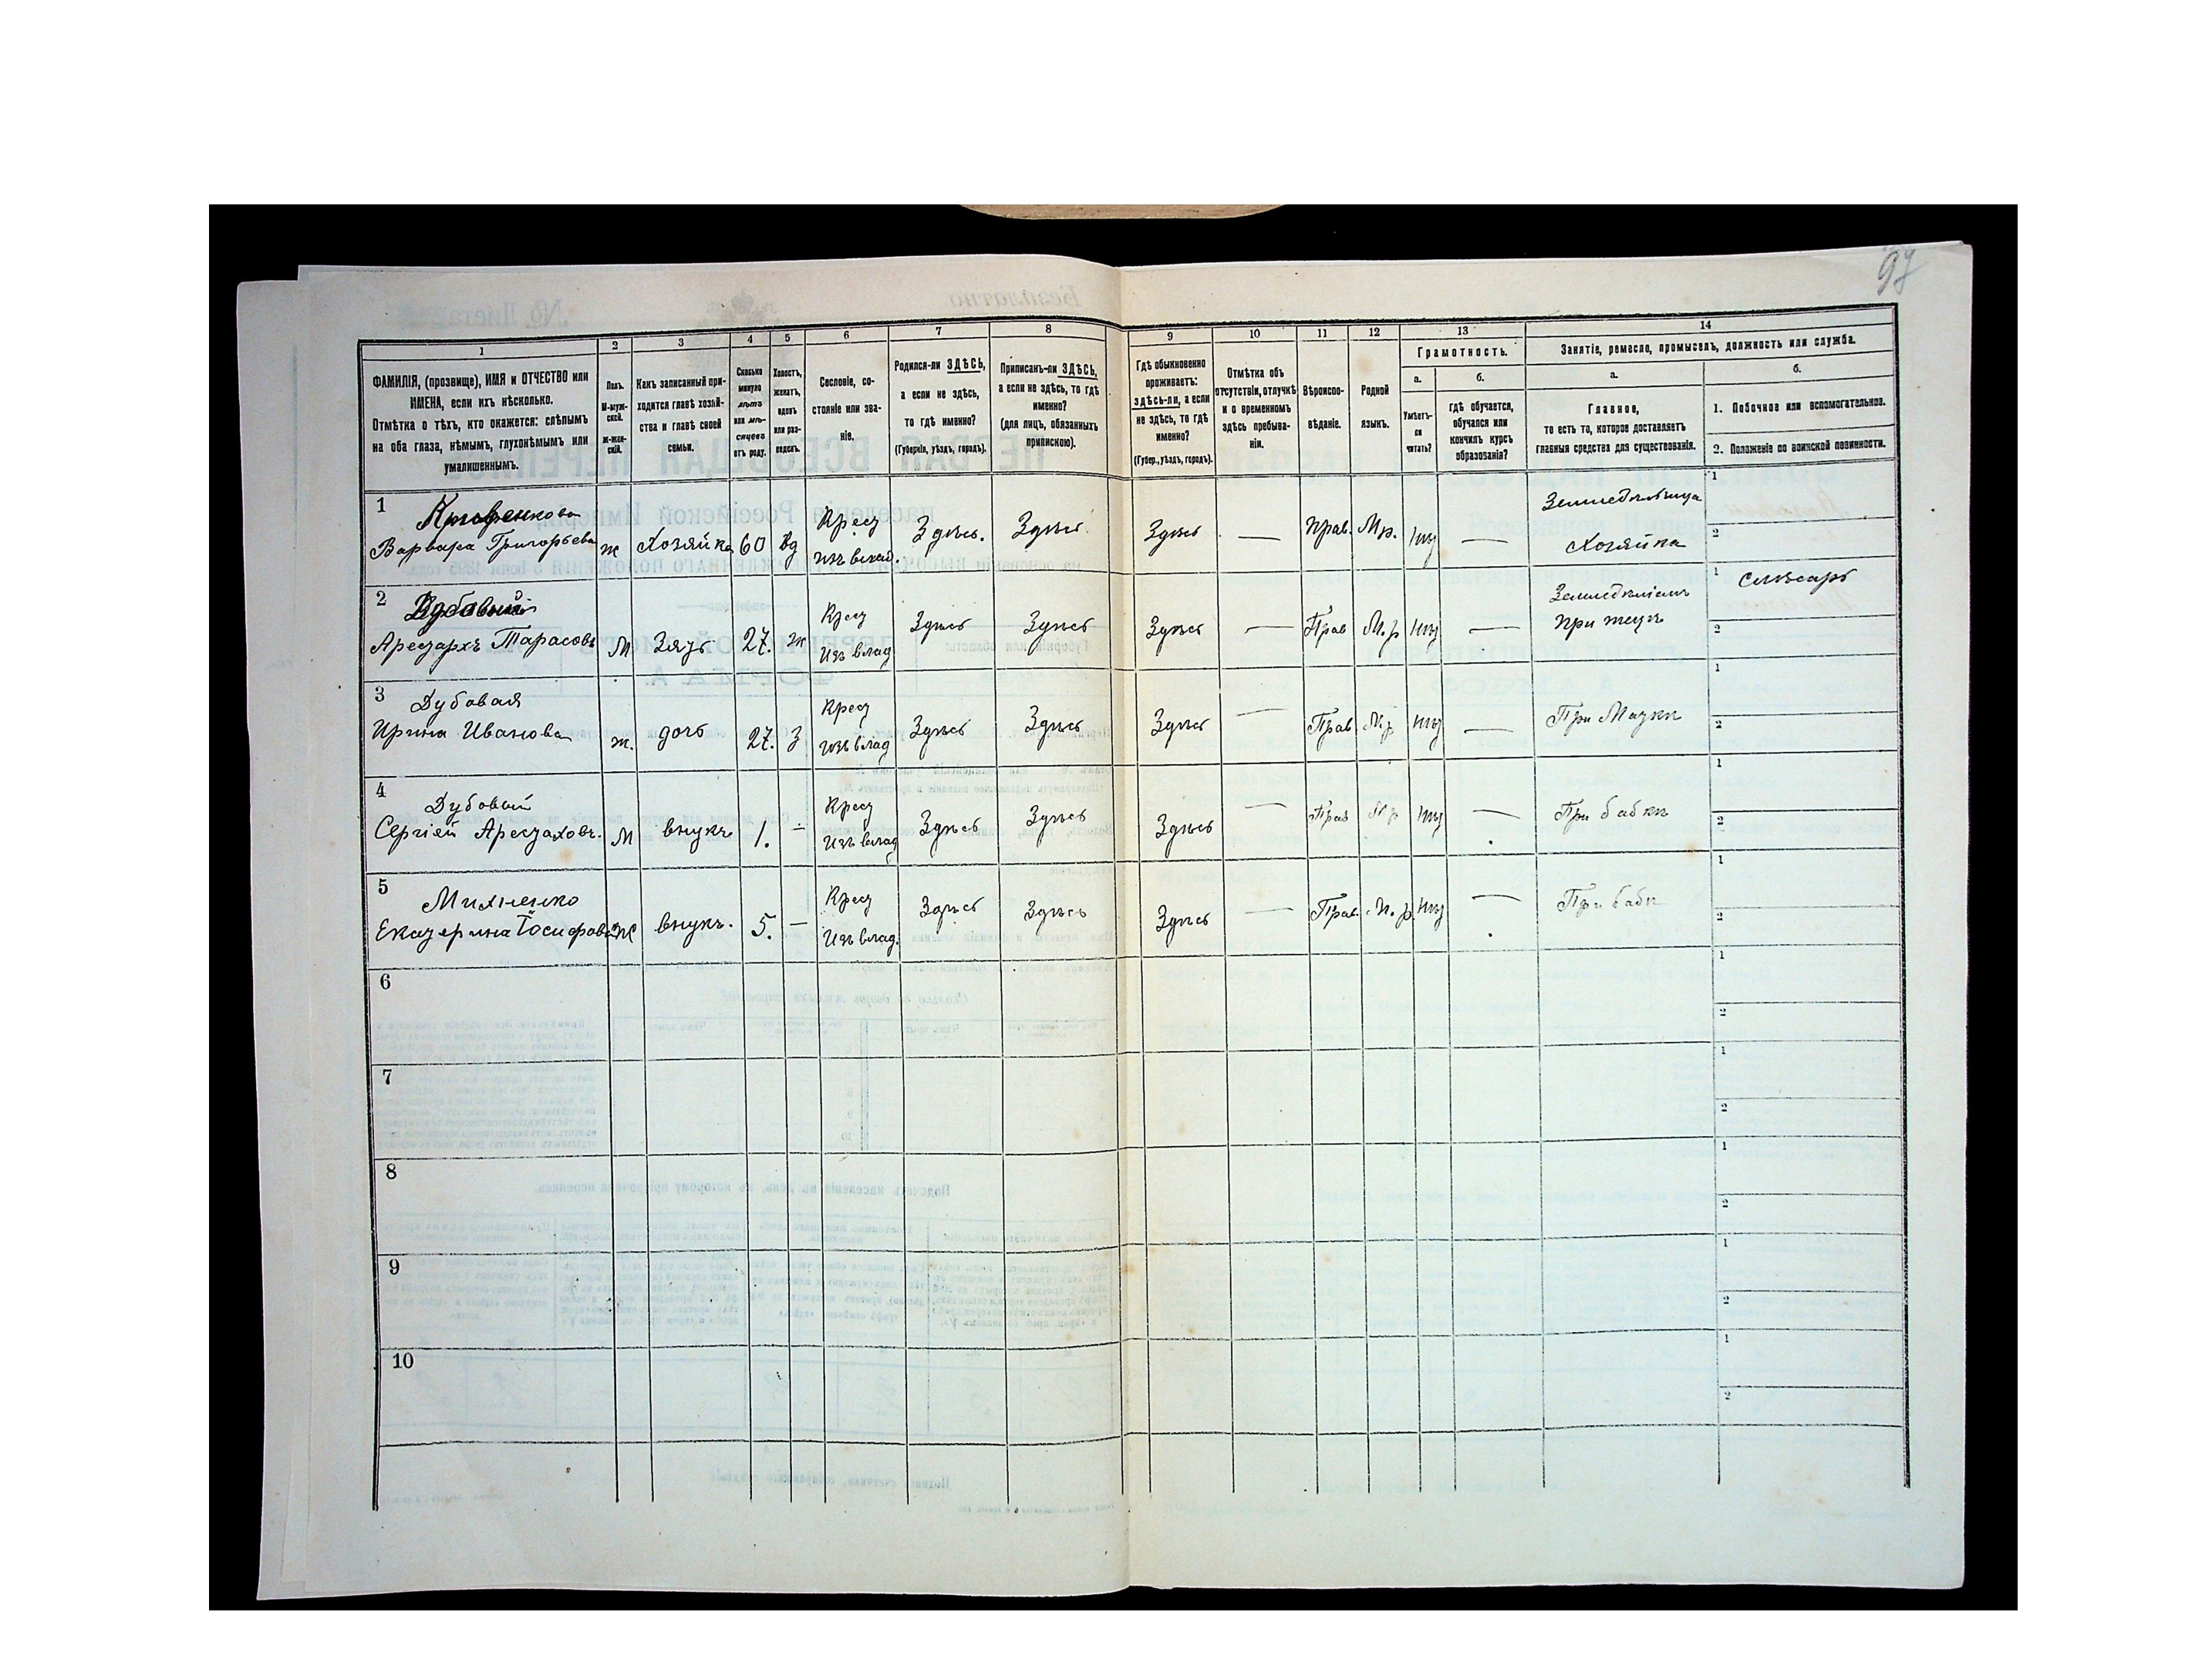 97
1 2 3 4 5 6 7 8 9 10 11 12 13 14
ФАМИЛІЯ, (прозвище), ИМЯ и ОТЧЕСТВО или ИМЕНА, если ихъ нѣсколько.
Отмѣтка о тѣхъ, кто окажется: слѣпымъ на оба глаза, нѣмымъ, глухонѣмымъ или умалишеннымъ.
Полъ.
М-муж-
ской.
Ж-жен-
скій.
Какъ записанный при-
ходится главѣ хозяй-
ства и главѣ своей
семьи.
Сколько
минуло
лѣтъ
или мѣ-
сяцевъ
отъ роду.
Холостъ,
женатъ,
вдовъ
или раз-
веденъ.
Сословіе, со-
стояніе или зва-
ніе.
Родился-ли ЗДѢСЬ,
а если не здѣсь,
то гдѣ именно?
(Губернія, уѣздъ, городъ).
Приписанъ-ли ЗДѢСЬ,
а если не здѣсь, то гдѣ
именно?
(для лицъ, обязанныхъ
припискою).
Гдѣ обыкновенно
проживаетъ:
здѣсь-ли, а если
не здѣсь, то гдѣ
именно?
(Губер., уѣздъ, городъ).
Отмѣтка объ
отсутствіи, отлучкѣ
и о временномъ
здѣсь пребыва-
ніи.
Вѣроиспо-
вѣданіе.
Родной
языкъ.
Грамотность.
а.
Умѣетъ-
ли
читать?
б.
гдѣ обучается,
обучался или
кончилъ курсъ
образованія?
Занятіе, ремесло, промыселъ, должность или служба.
а.
Главное,
то есть то, которое доставляетъ
главныя средства для существованія.
б.
1. Побочное или вспомогательное.
2. Положеніе по воинской повинности.
1 Кривенкова Крест Земледѣльица 1
Варвара Григорьева ж Хозяйка 60 вд изъ влад. Здѣсь. Здѣсь Здѣсь — Прав. Мр. нѣт — Хозяйка 2
2 Дубовый Крест Земледѣліемъ 1 слѣсарь
Арестархъ Тарасовъ М Зять 27. ж Изъ влад Здѣсь Здѣсь Здѣсь — Прав М.р нѣт — при тещѣ 2
3 Дубовая Крест 1
Ирина Иванова ж. дочь 27. З изъ влад Здѣсь Здѣсь Здѣсь — Прав М.р нѣт — При Маткѣ 2
4 Дубовый Крест 1
Сергѣй Арестаховъ. М внукъ 1. — Изъ влад Здѣсь Здѣсь Здѣсь — Прав М р нѣт — При бабкѣ 2
5 Михненко Крест 1
Екатерина Іосифова Ж внукъ. 5. — Изъ влад. Здѣсь Здѣсь Здѣсь — Прав. М. р. нѣт — При бабк 2
6 1
2
7 1
2
8 1
2
9 1
2
10 1
2